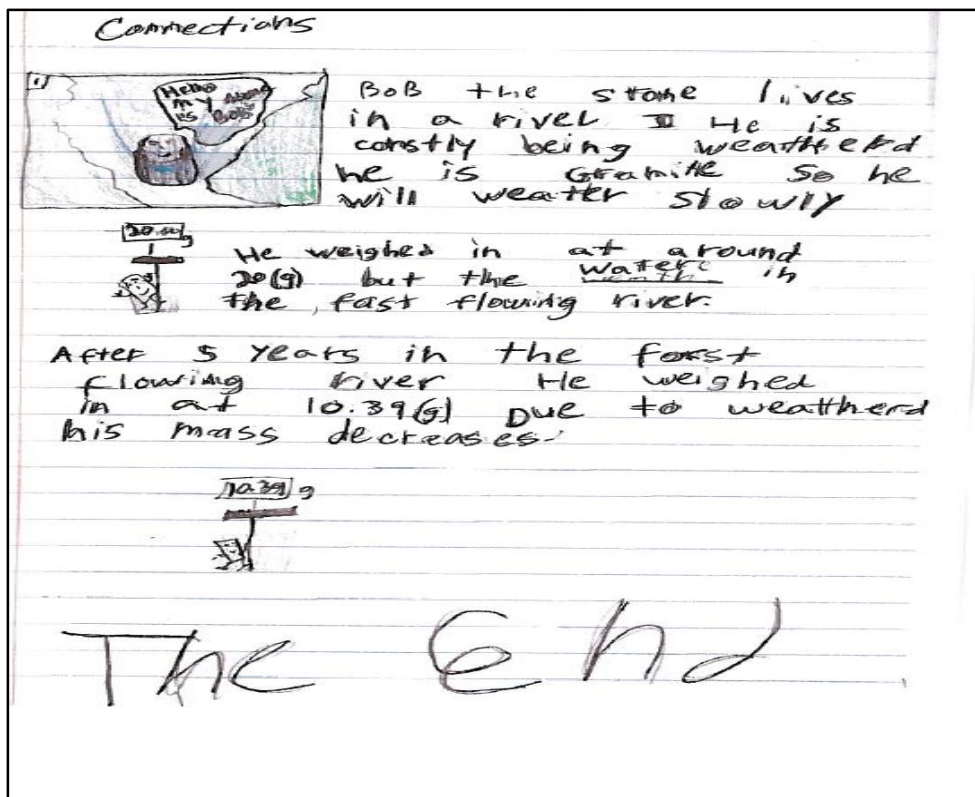 Connections
1)
Hello
my Name
is Bob
BoB the stone lives
in a river He is
constly being weattherd
he is Granite So he
will weatter slowly
20.00g
He weighed in at around
20(g) but the water in
the fast flowing river.
After 5 years in the forst
flowing river He weighed
in at 10.39(g) Due to weattherd
his mass decreases.
10.39g
The End